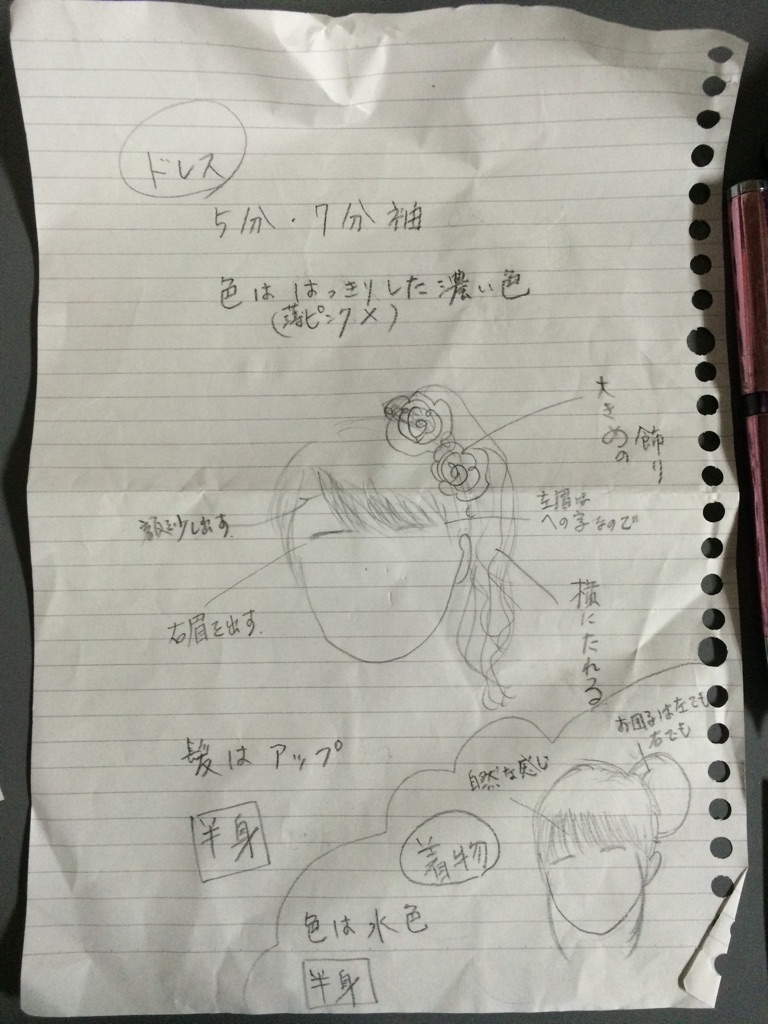 ドレス
5分・7分袖
色ははっきりした濃い色
(薄ピンク×)
大きめの
飾り
額を少し出す。
左眉は
への字なので
右眉を出す。
横にたれる
髪はアップ
半身
お団子は左でも
右でも
自然な感じ
着物
色は水色
半身